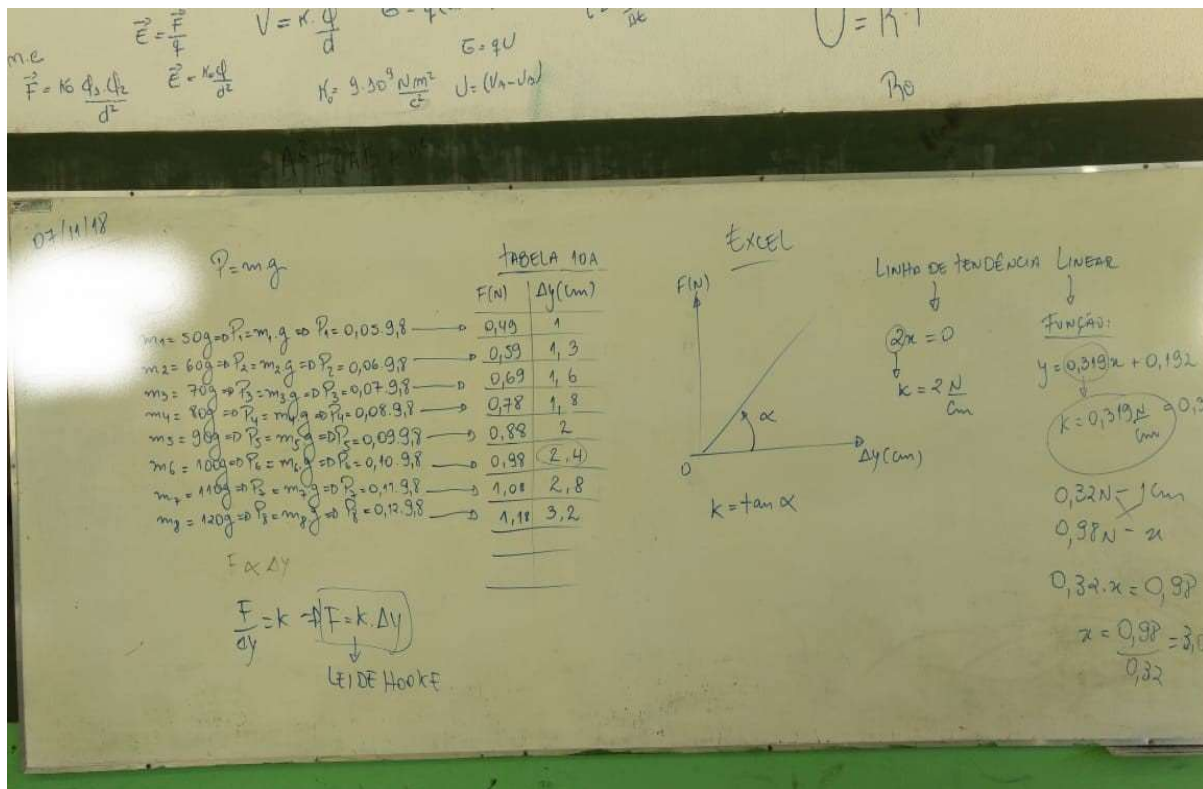 E = F/q
V = K. Q/d
U = K.
m.c
F = K0 Q1.Q2/d²
E = K0Q/d²
K0 = 9.10⁹ Nm²/c²
U = (VA-VB)
Ro
07/11/18
P = mg
m1 = 50g ⇒ P1 = m1.g ⇒ P1 = 0,05.9,8
m2 = 60g ⇒ P2 = m2g ⇒ P2 = 0,06.9,8
m3 = 70g ⇒ P3 = m3g ⇒ P3 = 0,07.9,8
m4 = 80g ⇒ P4 = m4.g ⇒ P4 = 0,08.9,8
m5 = 90g ⇒ P5 = m5g ⇒ P5 = 0,09.9,8
m6 = 100g ⇒ P6 = m6.g ⇒ P6 = 0,10.9,8
m7 = 110g ⇒ P7 = m7g ⇒ P7 = 0,11.9,8
m8 = 120g ⇒ P8 = m8g ⇒ P8 = 0,12.9,8
F ∝ Δy
F/Δy = k ⇒ F = k.Δy
LEI DE HOOKE
TABELA 10A
F(N) Δy(cm)
0,49 1
0,59 1,3
0,69 1,6
0,78 1,8
0,88 2
0,98 2,4
1,08 2,8
1,18 3,2
EXCEL
F(N)
α
0
Δy(cm)
k = tan α
LINHA DE TENDÊNCIA LINEAR
2x = 0
k = 2 N/cm
FUNÇÃO:
y = 0,319x + 0,192
k = 0,319 N/cm
0,32N - 1cm
0,98N - x
0,32.x = 0,98
x = 0,98/0,32 = 3,0